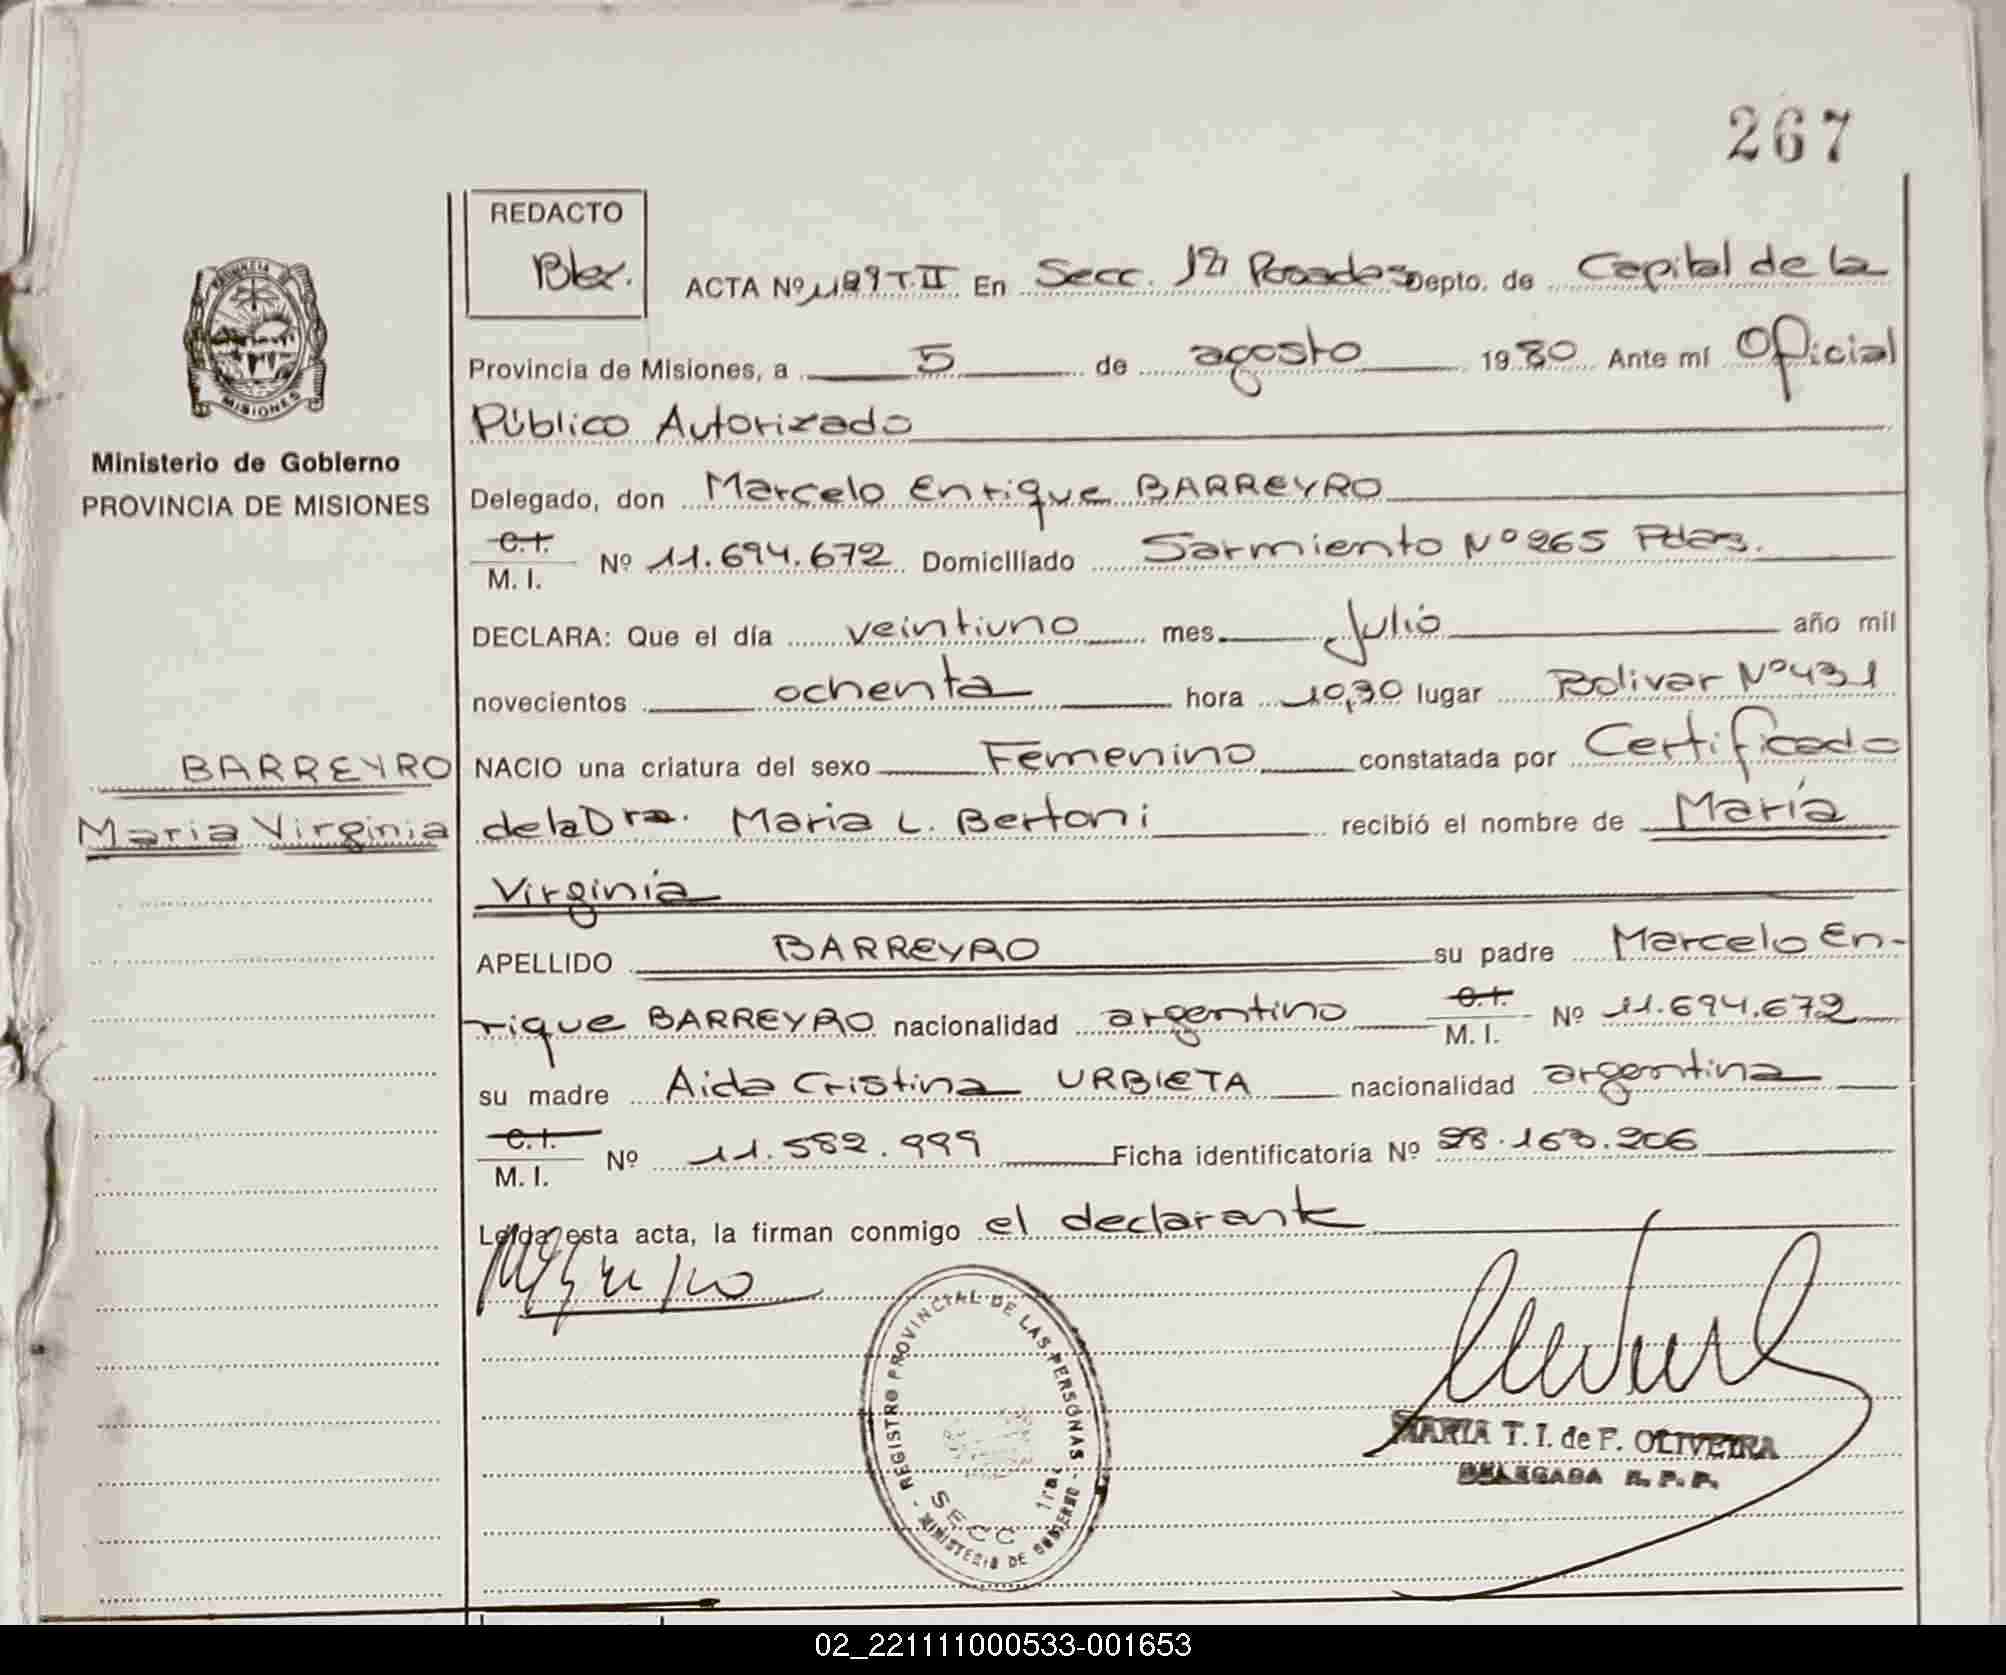 267
REDACTO
Blex.
ACTA Nº 1189 T.II En Secc. 1ª Posadas Depto. de Capital de la
PROVINCIA
MISIONES
Provincia de Misiones, a 5 de agosto 1980 Ante mí Oficial
Público Autorizado
Ministerio de Gobierno
PROVINCIA DE MISIONES
Delegado, don Marcelo Enrique BARREYRO
C.I.
M. I. Nº 11.694.672 Domiciliado Sarmiento Nº 265 Pdas.
DECLARA: Que el día veintiuno mes Julio año mil
novecientos ochenta hora 10,30 lugar Bolivar Nº 431
BARREYRO
Maria Virginia
NACIO una criatura del sexo Femenino constatada por Certificado
de la Dra. Maria L. Bertoni recibió el nombre de María
Virginia
APELLIDO BARREYRO su padre Marcelo En-
rique BARREYRO nacionalidad argentino C.I. M. I. Nº 11.694.672
su madre Aida Cristina URBIETA nacionalidad argentina
C.I.
M. I. Nº 11.582.999 Ficha identificatoria Nº 28.163.206
Leída esta acta, la firman conmigo el declarante
REGISTRO PROVINCIAL DE LAS PERSONAS
SECC 1ra.
MINISTERIO DE GOBIERNO
MARIA T. I. de F. OLIVEIRA
DELEGADA R. P. P.
02_221111000533-001653